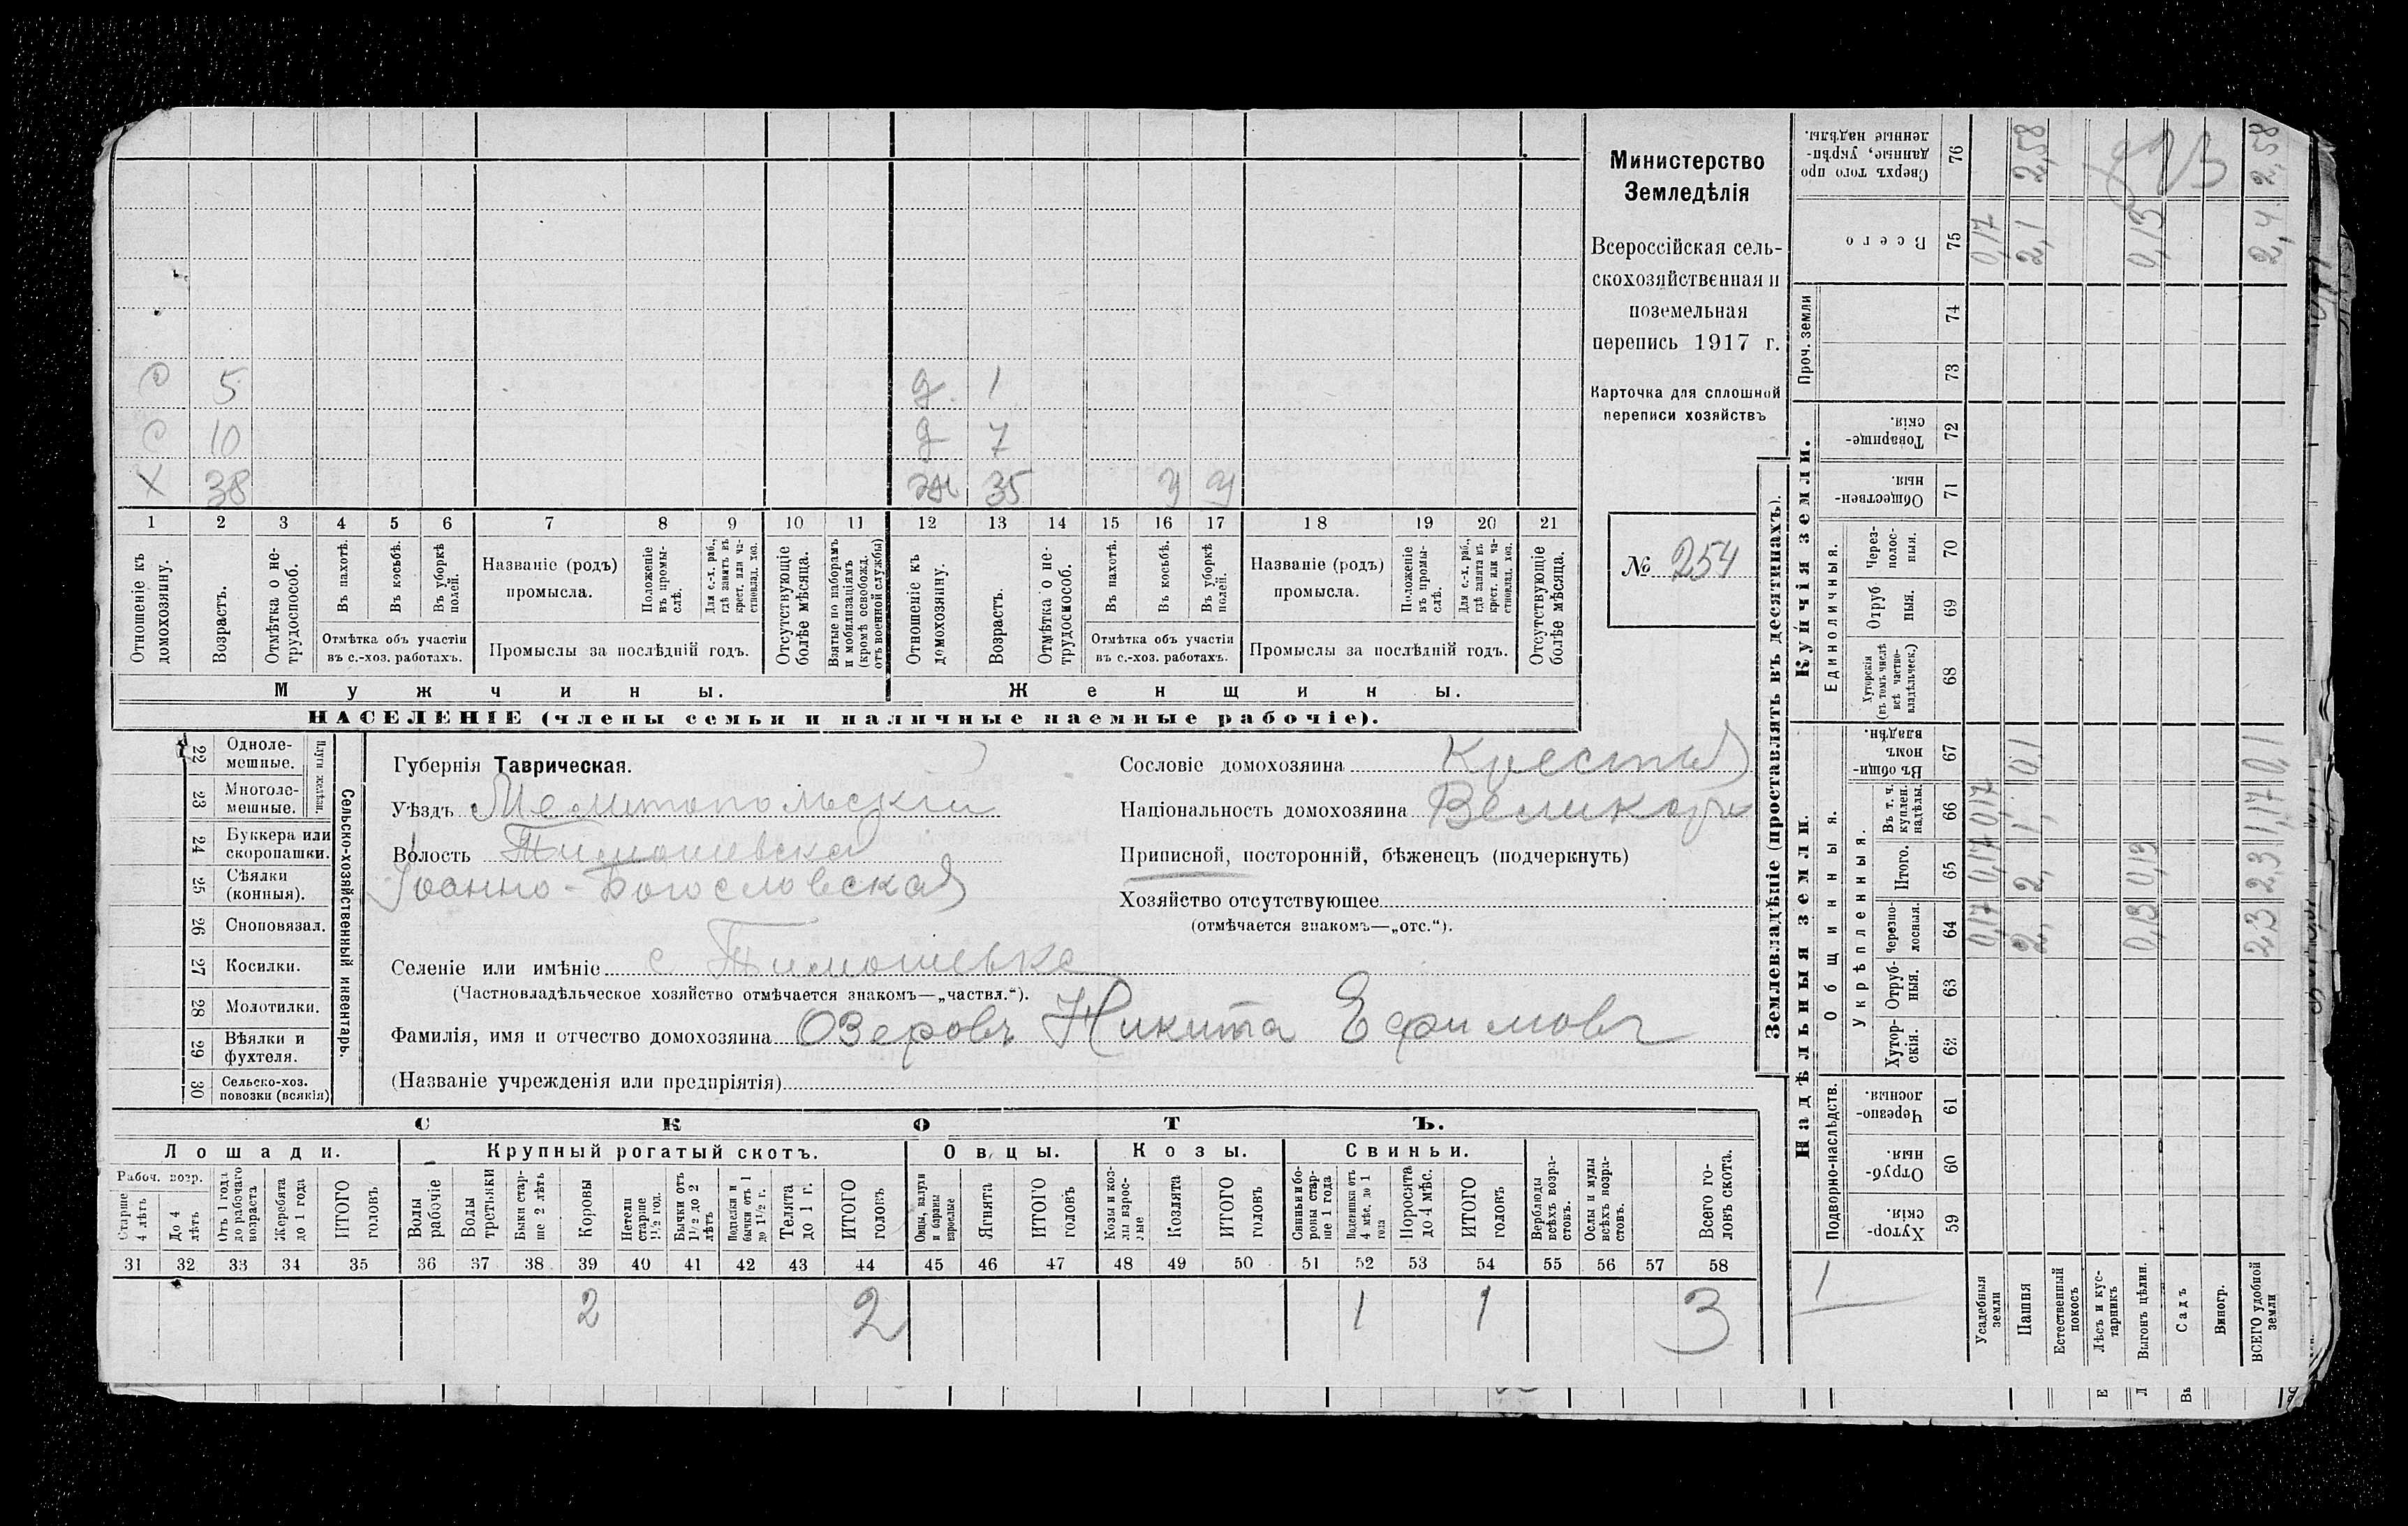 О 5 д. 1
С 10 д 7
Х 38 ж 35 у у
1 2 3 4 5 6 7 8 9 10 11 12 13 14 15 16 17 18 19 20 21
Отношеніе къ домохозяину.
Возрастъ.
Отмѣтка о не-трудоспособ.
Въ пахотѣ.
Въ косьбѣ.
Въ уборкѣ полей.
Отмѣтка объ участіи
въ с.-хоз. работахъ.
Названіе (родъ)
промысла.
Положеніе въ промы-слѣ.
Для с.-х. раб., гдѣ занятъ въ крест. или ча-стновлад. хоз.
Промыслы за послѣдній годъ.
Отсутствующіе болѣе мѣсяца.
Взятые по наборамъ и мобилизаціямъ (кромѣ освобожд. отъ военной службы)
Отношеніе къ домохозяину.
Возрастъ.
Отмѣтка о не-трудоспособ.
Въ пахотѣ.
Въ косьбѣ.
Въ уборкѣ полей.
Отмѣтка объ участіи
въ с.-хоз. работахъ.
Названіе (родъ)
промысла.
Положеніе въ промы-слѣ.
Для с.-х. раб., гдѣ занята въ крест. или ча-стновлад. хоз.
Промыслы за послѣдній годъ.
Отсутствующіе болѣе мѣсяца.
Мужчины.
Женщины.
НАСЕЛЕНІЕ (члены семьи и наличные наемные рабочіе).
Министерство
Земледѣлія
Всероссійская сель-
скохозяйственная и
поземельная
перепись 1917 г.
Карточка для сплошной
переписи хозяйствъ
№ 254
22 Одноле-
мешные.
23 Многоле-
мешные.
Плуги желѣзн.
24 Буккера или
скоропашки.
25 Сѣялки
(конныя).
26 Сноповязал.
27 Косилки.
28 Молотилки.
29 Вѣялки и
фухтеля.
30 Сельско-хоз.
повозки (всякія)
Сельско-хозяйственный инвентарь.
Губернія Таврическая.
Уѣздъ Мелитопольскій
Волость Тимошевская
Іоанно-Богословская
Селеніе или имѣніе с Тимошевка
(Частновладѣльческое хозяйство отмѣчается знакомъ—„частвл.“).
Фамилія, имя и отчество домохозяина Озеровъ Никита Ефимовъ
(Названіе учрежденія или предпріятія)
Сословіе домохозяина Крестья
Національность домохозяина Великор
Приписной, посторонній, бѣженецъ (подчеркнуть)
Хозяйство отсутствующее
(отмѣчается знакомъ—„отс.“).
СКОТЪ.
Лошади. Крупный рогатый скотъ. Овцы. Козы. Свиньи.
Рабоч. возр.
Старше 4 лѣтъ
До 4 лѣтъ
Отъ 1 года до рабочаго возраста
Жеребята до 1 года
ИТОГО головъ
Волы рабочіе
Волы третьяки
Быки стар-ше 2 лѣтъ
Коровы
Нетели старше 1½ год.
Бычки отъ 1½ до 2 лѣтъ
Подтелки и бычки отъ 1 до 1½ г.
Телята до 1 г.
ИТОГО головъ
Овцы, валухи и бараны взрослые
Ягнята
ИТОГО головъ
Козы и коз-лы взрос-лые
Козлята
ИТОГО головъ
Свиньи и бо-ровы стар-ше 1 года
Подсвинки отъ 4 мѣс. до 1 года
Поросята до 4 мѣс.
ИТОГО головъ
Верблюды всѣхъ возра-стовъ.
Ослы и мулы всѣхъ возра-стовъ.
Всего го-ловъ скота.
31 32 33 34 35 36 37 38 39 40 41 42 43 44 45 46 47 48 49 50 51 52 53 54 55 56 57 58
2 2 1 1 3
Землевладѣніе (проставлять въ десятинахъ).
Надѣльныя земли.
Купчія земли.
Проч. земли
Подворно-наслѣдств.
Общинныя.
Укрѣпленныя.
Единоличныя.
Хутор-скія. 59
Отруб-ныя. 60
Черезпо-лосныя. 61
Хутор-скія. 62
Отруб-ныя. 63
Черезпо-лосныя. 64
Итого. 65
Въ т. ч. куплен. надѣлы 66
Въ общи-номъ владѣн. 67
Хуторскія (въ томъ числѣ всѣ частно-владѣльческ.) 68
Отруб ныя. 69
Через-полос-ныя. 70
Обществен-ныя. 71
Товарище-скія. 72
73
74
Всего 75
Сверхъ того про данные, укрѣп-ленные надѣлы. 76
1
Усадебныя земли 0,17 0,17 0,17 0,17
Пашня 2, 2, 1, 0,1 2,1 2,58
Естественный покосъ
Лѣсъ и кус-тарникъ
Выгонъ цѣлин. 0,13 0,13 0,13
Садъ
Виногр.
ВСЕГО удобной земли 2,3 2,3 1,17 0,1 2,4 2,58